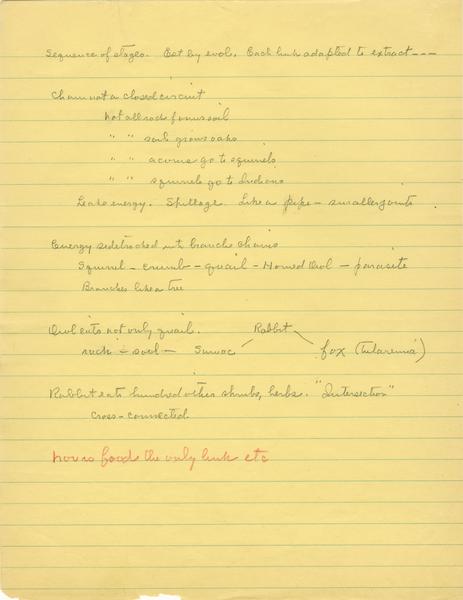 Sequence of stages. Est by evol. Each link adapted to extract ---
Chain not a closed circuit
Not all rock forms soil
" " soil grows oaks
" " acorns go to squirrels
" " squirrels go to Indians
Leaks energy. Spillage. Like a pipe - smaller joints
Energy sidetracked into branch chains
Squirrel - crumb - quail - Horned Owl - parasite
Branches like a tree
Owl eats not only quail. Rabbit
rock - soil - Sumac fox (tularemia)
Rabbit eats hundred other shrubs, herbs. "Intersection"
Cross-connected
nor is food the only link etc